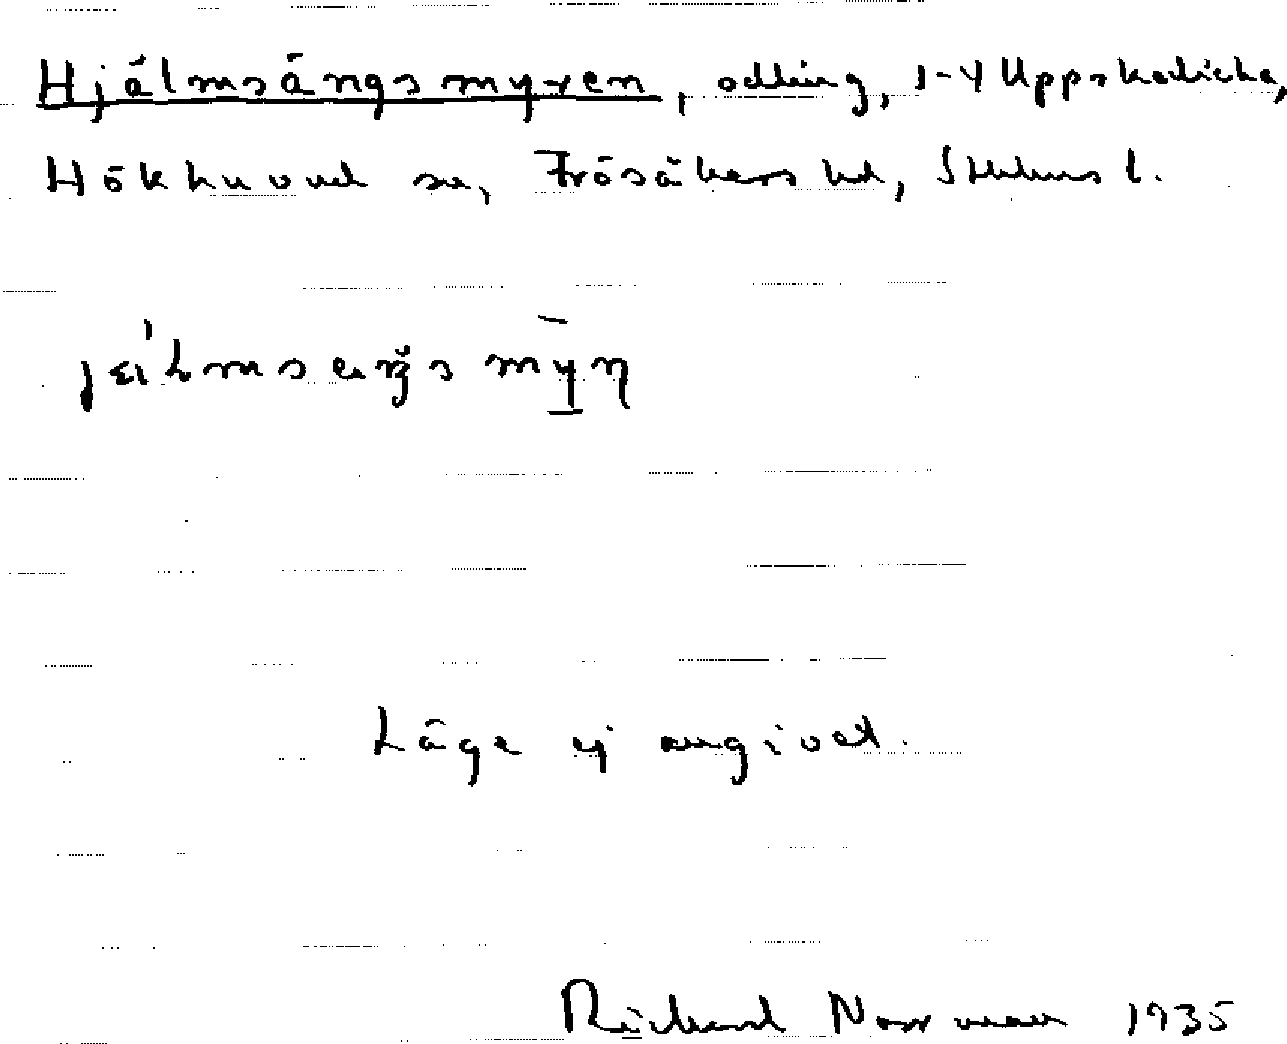 Hjälmsängsmyren, odling, 1-4 Uppskedicka,
Hökhuvud sn, Frösåkers hd, Sthlms l.
Läge ej angivet.
Richard Norrman 1935